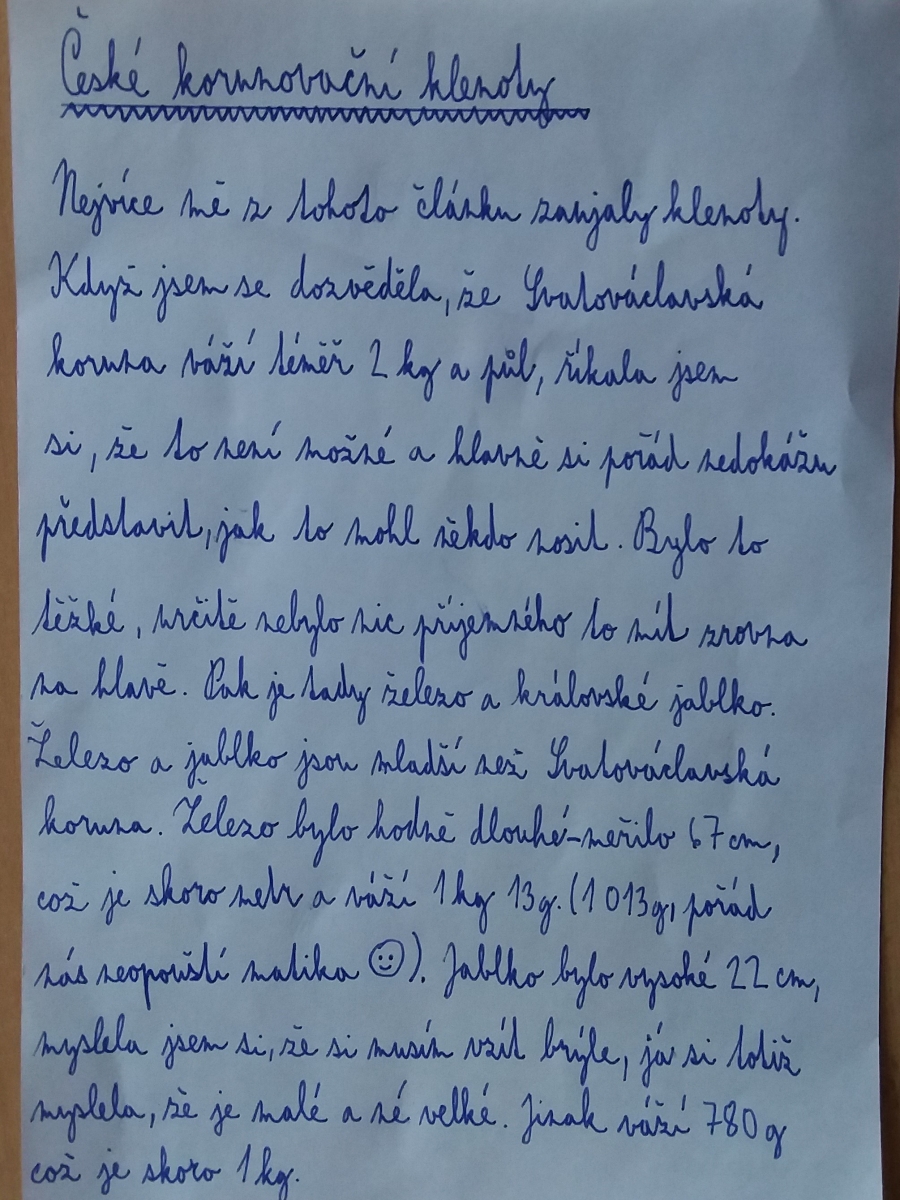 České korunovační klenoty
Nejvíce mě z tohoto článku zaujaly klenoty.
Když jsem se dozvěděla, že Svatováclavská
koruna váží téměř 2 kg a půl, říkala jsem
si, že to není možné a hlavně si pořád nedokážu
představit, jak to mohl někdo nosit. Bylo to
těžké, určitě nebylo nic příjemného to mít zrovna
na hlavě. Pak je tady železo a královské jablko.
Železo a jablko jsou mladší než Svatováclavská
koruna. Železo bylo hodně dlouhé-měřilo 67 cm,
což je skoro metr a váží 1 kg 13g. (1 013g, pořád
nás neopouští matika ☺). Jablko bylo vysoké 22 cm,
myslela jsem si, že si musím vzít brýle, já si totiž
myslela, že je malé a né velké. Jinak váží 780 g
což je skoro 1 kg.